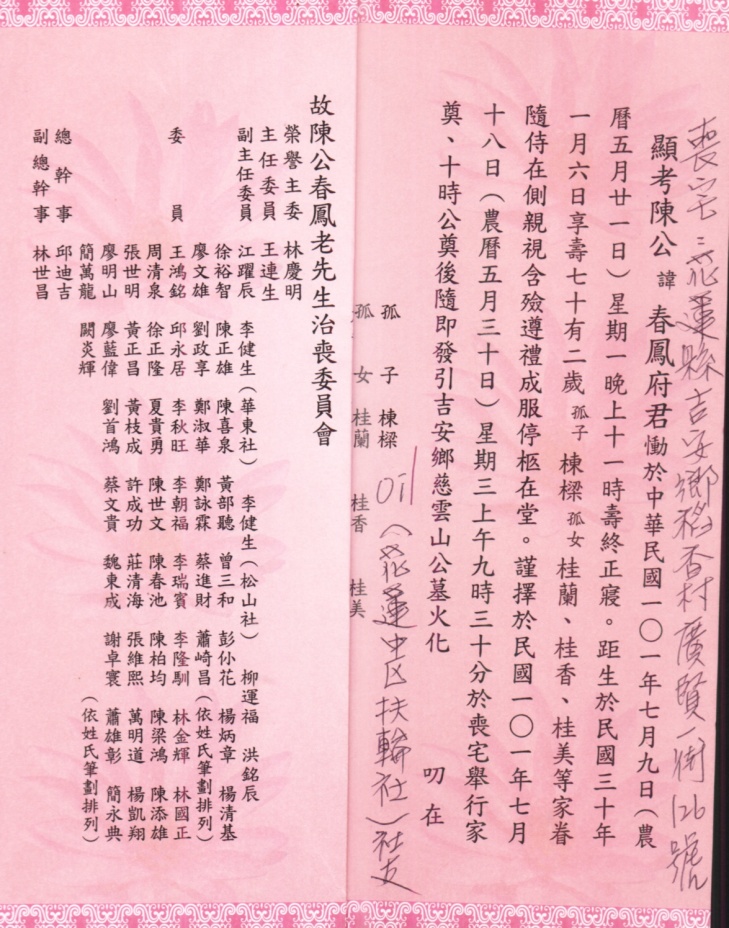 喪宅：花蓮縣吉安鄉稻香村廣賢一街126號
顯考陳公諱春鳳府君慟於中華民國一〇一年七月九日（農
曆五月廿一日）星期一晚上十一時壽終正寢。距生於民國三十年
一月六日享壽七十有二歲孤子棟樑孤女桂蘭、桂香、桂美等家眷
隨侍在側親視含殮遵禮成服停柩在堂。謹擇於民國一〇一年七月
十八日（農曆五月三十日）星期三上午九時三十分於喪宅舉行家
奠、十時公奠後隨即發引吉安鄉慈雲山公墓火化
叨在
孤子 棟樑 Oil（花蓮中区扶輪社）社友
孤女 桂蘭 桂香 桂美
故陳公春鳳老先生治喪委員會
榮譽主委 林慶明
主任委員 王連生
副主任委員 江躍辰 李健生（華東社） 李健生（松山社） 柳運福 洪銘辰
徐裕智 陳正雄 陳喜泉 黃部聽 曾三和 彭仦花 楊炳章 楊清基
廖文雄 劉政享 鄭淑華 鄭詠霖 蔡進財 蕭崎昌（依姓氏筆劃排列）
委員 王鴻銘 邱永居 李秋旺 李朝福 李瑞賓 李隆馴 林金輝 林國正
周清泉 徐正隆 夏貴勇 陳世文 陳春池 陳柏均 陳梁鴻 陳添雄
張世明 黃正昌 黃枝成 許成功 莊清海 張維熙 萬明道 楊凱翔
廖明山 廖藍偉 劉首鴻 蔡文貴 魏東成 謝卓寰 蕭雄彰 簡永典
簡萬龍 闕炎輝 （依姓氏筆劃排列）
總幹事 邱迪吉
副總幹事 林世昌